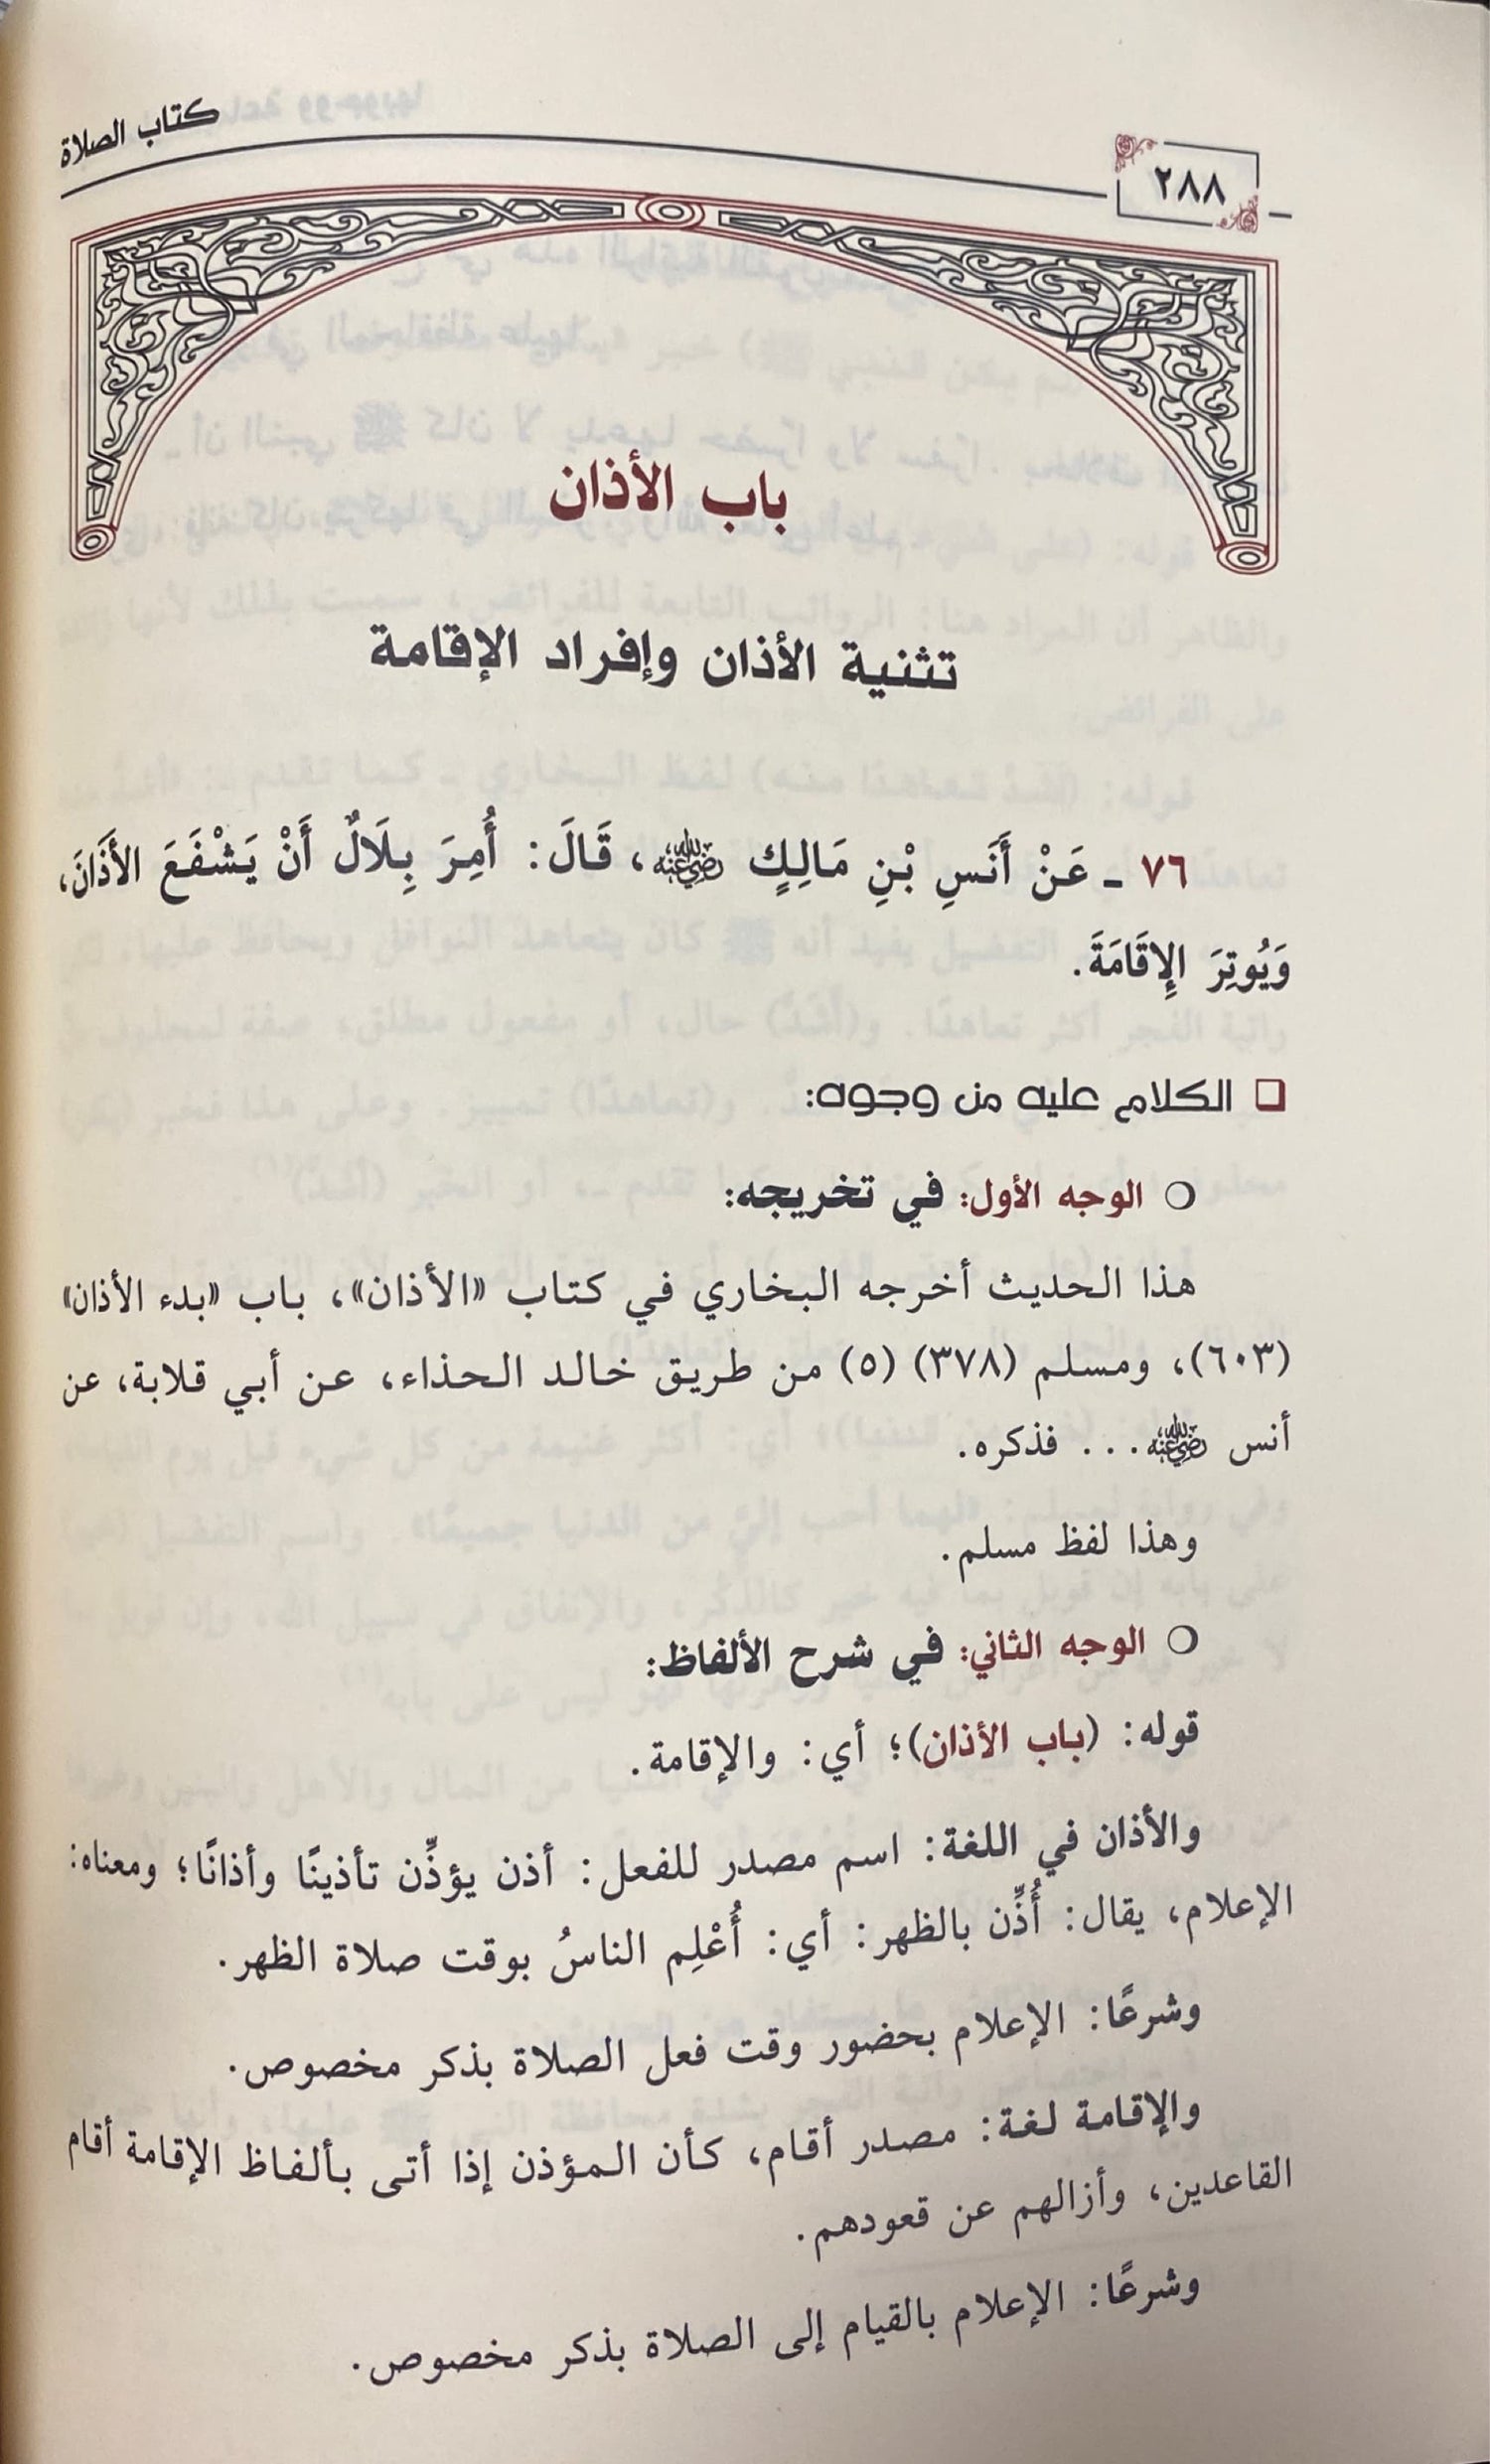 كتاب الصلاة
٢٨٨
باب الأذان
تثنية الأذان وإفراد الإقامة
٧٦ - عَنْ أَنَسِ بْنِ مَالِكٍ رضي الله عنه، قَالَ: أُمِرَ بِلَالٌ أَنْ يَشْفَعَ الأَذَانَ،
وَيُوتِرَ الإِقَامَةَ.
❏ الكلام عليه من وجوه:
○ الوجه الأول: في تخريجه:
هذا الحديث أخرجه البخاري في كتاب «الأذان»، باب «بدء الأذان»
(٦٠٣)، ومسلم (٣٧٨) (٥) من طريق خالد الحذاء، عن أبي قلابة، عن
أنس رضي الله عنه... فذكره.
وهذا لفظ مسلم.
○ الوجه الثاني: في شرح الألفاظ:
قوله: (باب الأذان)؛ أي: والإقامة.
والأذان في اللغة: اسم مصدر للفعل: أذن يؤذِّن تأذينًا وأذانًا؛ ومعناه:
الإعلام، يقال: أُذِّن بالظهر: أي: أُعْلِم الناسُ بوقت صلاة الظهر.
وشرعًا: الإعلام بحضور وقت فعل الصلاة بذكر مخصوص.
والإقامة لغة: مصدر أقام، كأن المؤذن إذا أتى بألفاظ الإقامة أقام
القاعدين، وأزالهم عن قعودهم.
وشرعًا: الإعلام بالقيام إلى الصلاة بذكر مخصوص.